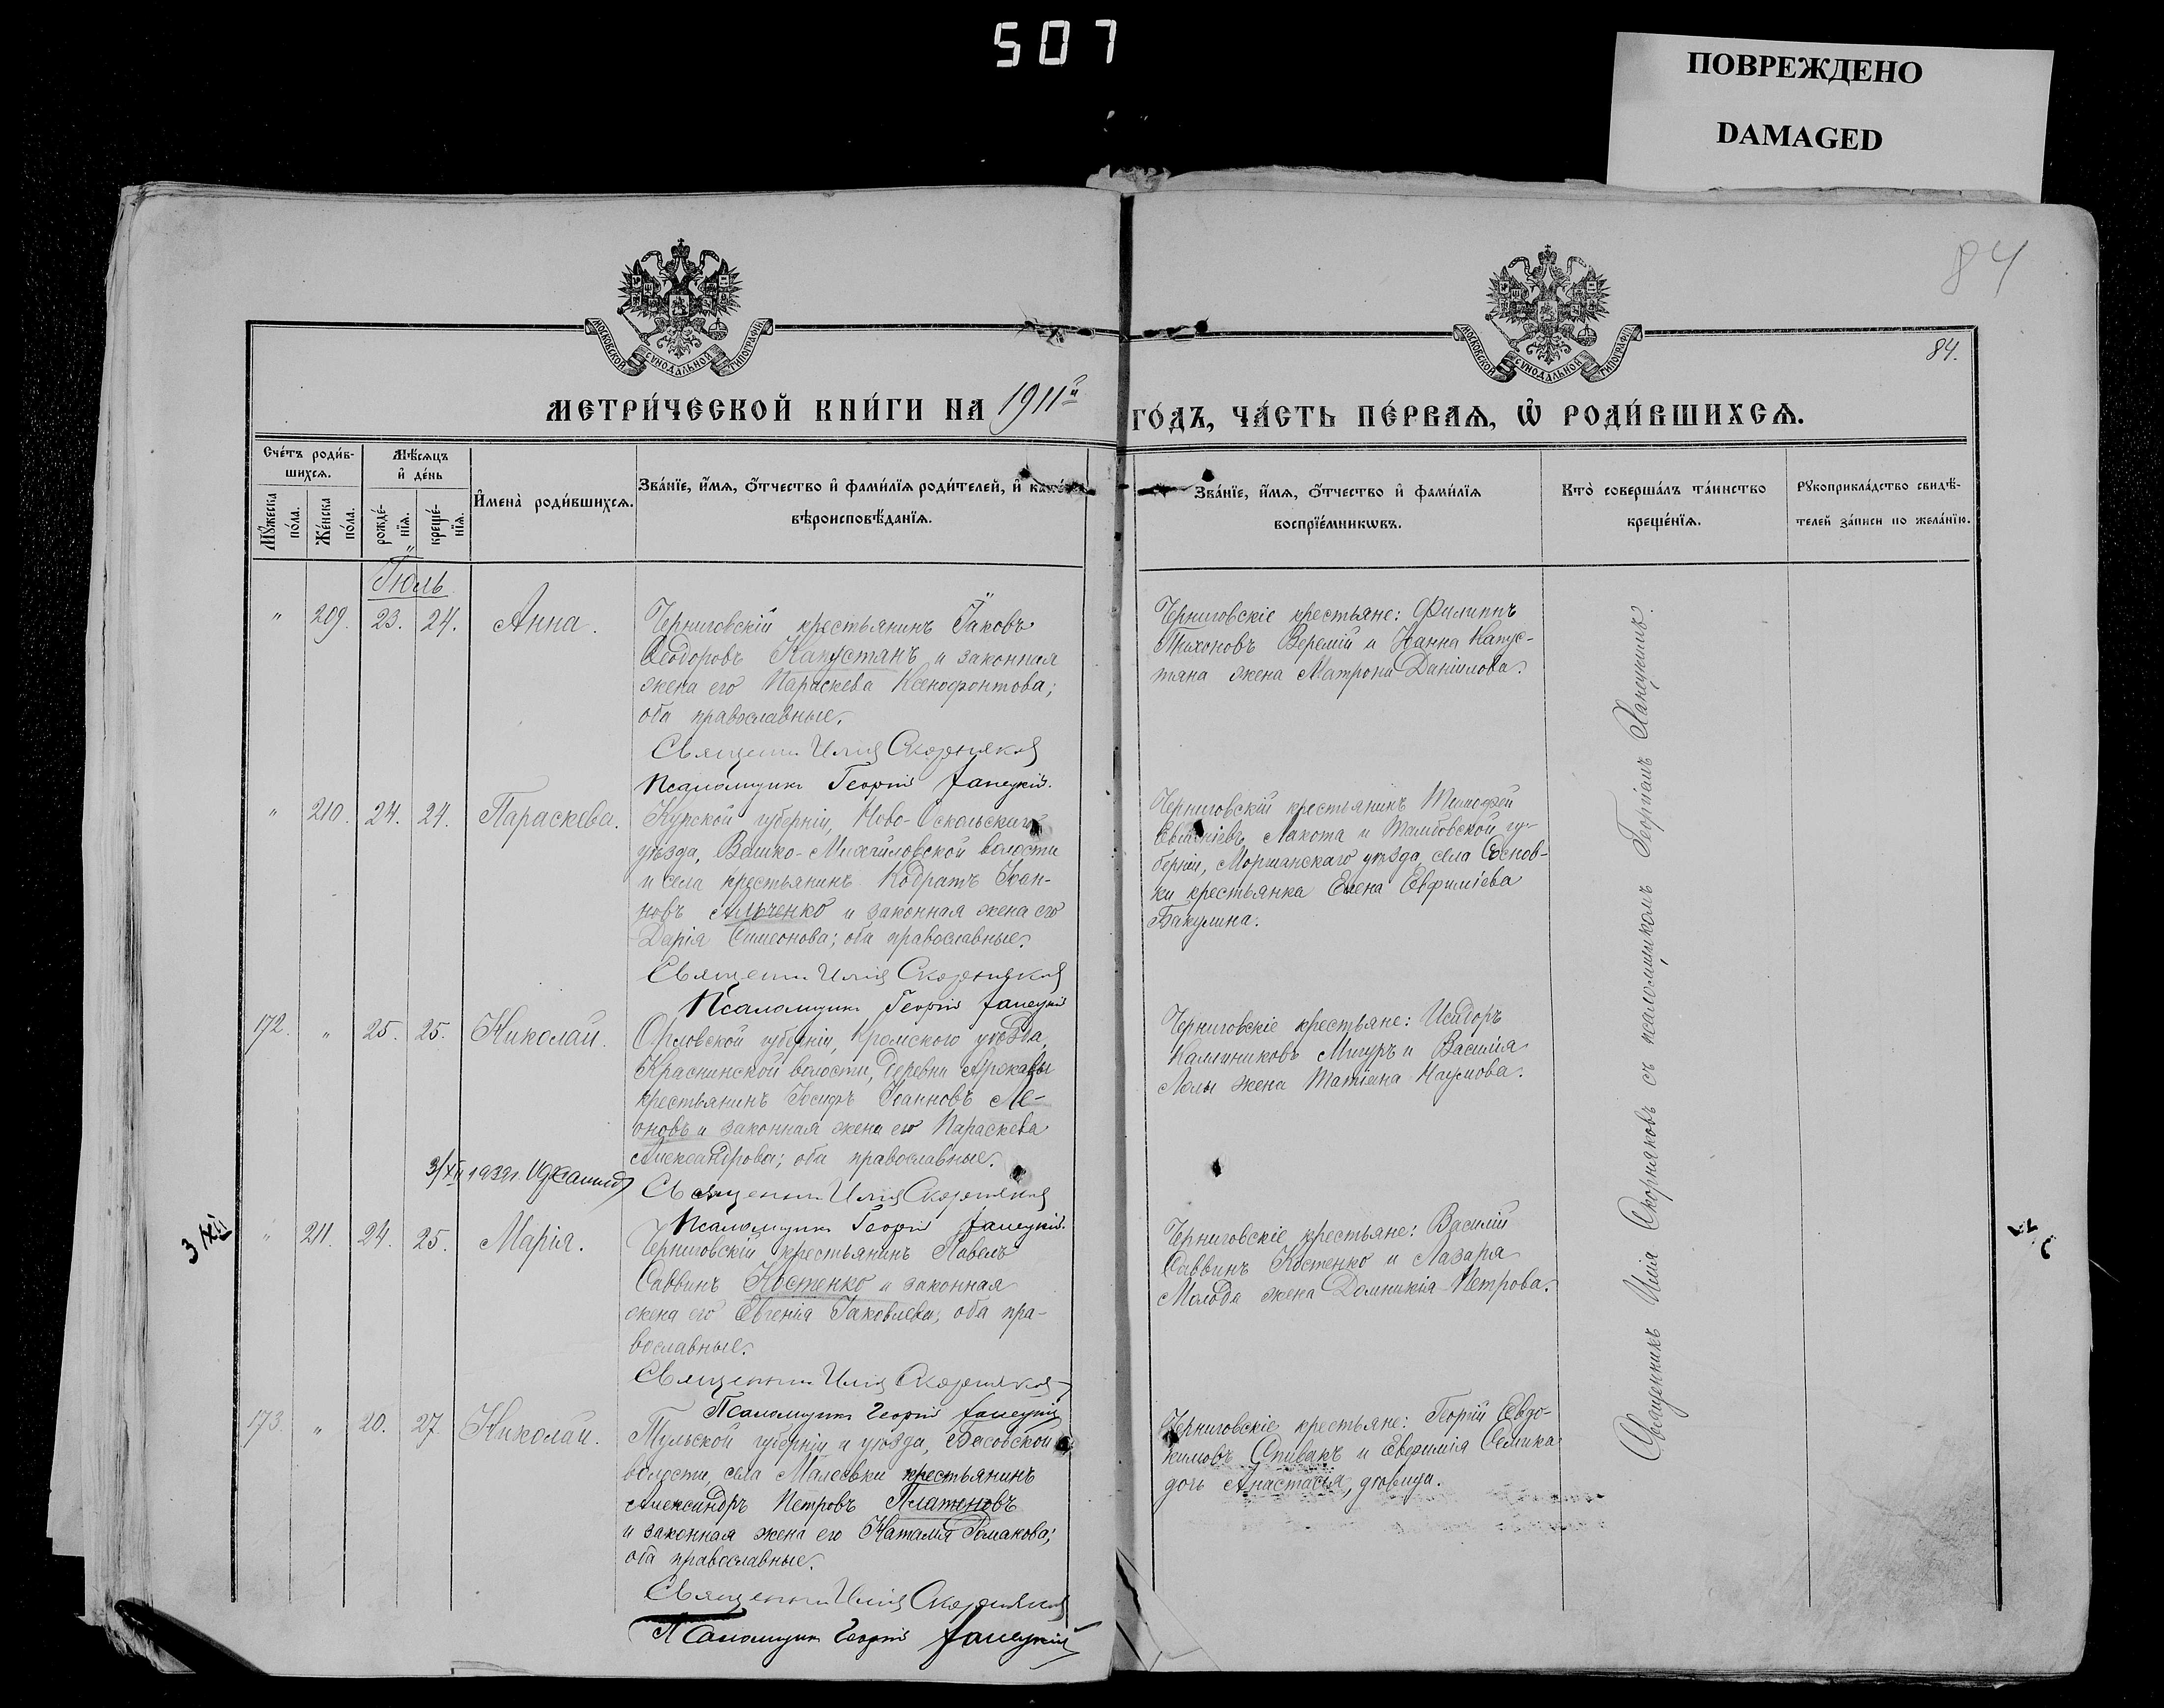 507
ПОВРЕЖДЕНО
DAMAGED
84
84.
МОСКОВСКОЙ СѴНОДАЛЬНОЙ ТИПОГРАФІИ
МОСКОВСКОЙ СѴНОДАЛЬНОЙ ТИПОГРАФІИ
МЕТРИ́ЧЕСКОЙ КНИ́ГИ НА 1911й ГО́ДЪ, ЧА́СТЬ ПЕ́РВАЯ, Ѡ҆ РОДИ́ВШИХСЯ.
Сче́тъ роди́в-
шихся.
Мѣ́сяцъ
и҆ де́нь
Мꙋ́жеска
по́ла.
Же́нска
по́ла.
рожде́-
нїя.
креще́-
нїя.
И҆мена̀ роди́вшихся.
Зва́нїе, и҆́мя, ѻ҆́тчество и҆ фами́лїя роди́телей, и҆
вѣроисповѣ́данїя.
Зва́нїе, и҆́мя, ѻ҆́тчество и҆ фами́лїя
воспрїе́мникѡвъ.
Кто̀ соверша́лъ та́инство
креще́нїя.
Рꙋкоприкла́дство свидѣ́-
телей за́писи по жела́нїю.
Іюль
" 209. 23. 24. Анна.
Черниговскій крестьянинъ Іаковъ
Ѳеодоровъ Капустянъ и законная
жена его Параскева Ксенофонтова;
оба православные.
Священникъ Илія Скорняковъ
Псаломщикъ Георгій
Черниговскіе крестьяне: Филиппъ
Тихоновъ Веремій и Іоанна Капус-
тяна жена Матрона Даніилова.
" 210. 24. 24. Параскева.
Курской губерніи, Ново-Оскольскаго
уѣзда, Волоко-Михайловской волости
и села крестьянинъ Кодратъ Іоан-
новъ Ильченко и законная жена его
Дарія Симеонова; оба православные.
Священникъ Илія Скорняковъ
Псаломщикъ Георгій
Черниговскій крестьянинъ Тимофей
Евстафіевъ Лакота и Тамбовской гу-
берніи, Моршанскаго уѣзда, села Соснов-
ки крестьянка Елена Евфиміева
Бакулина.
172. " 25. 25. Николай.
Орловской губерніи, Кромского уѣзда,
Краснинской волости, деревни Аржавы
крестьянинъ Іосифъ Іоанновъ Ле-
оновъ и законная жена его Параскева
Александрова; оба православные.
Священникъ Илія Скорняковъ
Псаломщикъ Георгій
Черниговскіе крестьяне: Исидоръ
Каллиниковъ Мигуръ и Василія
Лелы жена Татіана Наумова.
3/XII 1939г.
3/XII
" 211. 24. 25. Марія.
Черниговскій крестьянинъ Павелъ
Саввинъ Костенко и законная
жена его Евгенія Іаковлева; оба пра-
вославные.
Священникъ Илія Скорняковъ
Псаломщикъ Георгій
Черниговскіе крестьяне: Василій
Саввинъ Костенко и Лазаря
Молода жена Домникія Петрова.
173. " 20. 27. Николай.
Тульской губерніи и уѣзда, Басовской
волости, села Малеевки крестьянинъ
Александръ Петровъ Платоновъ
и законная жена его Наталія Романова;
оба православные.
Священникъ Илія Скорняковъ
Псаломщикъ Георгій
Черниговскіе крестьяне: Георгій Евдо-
кимовъ Спивакъ и Евфимія Семика
дочь Анастасія, дѣвица.
Священникъ Илія Скорняковъ съ псаломщикомъ Георгіемъ